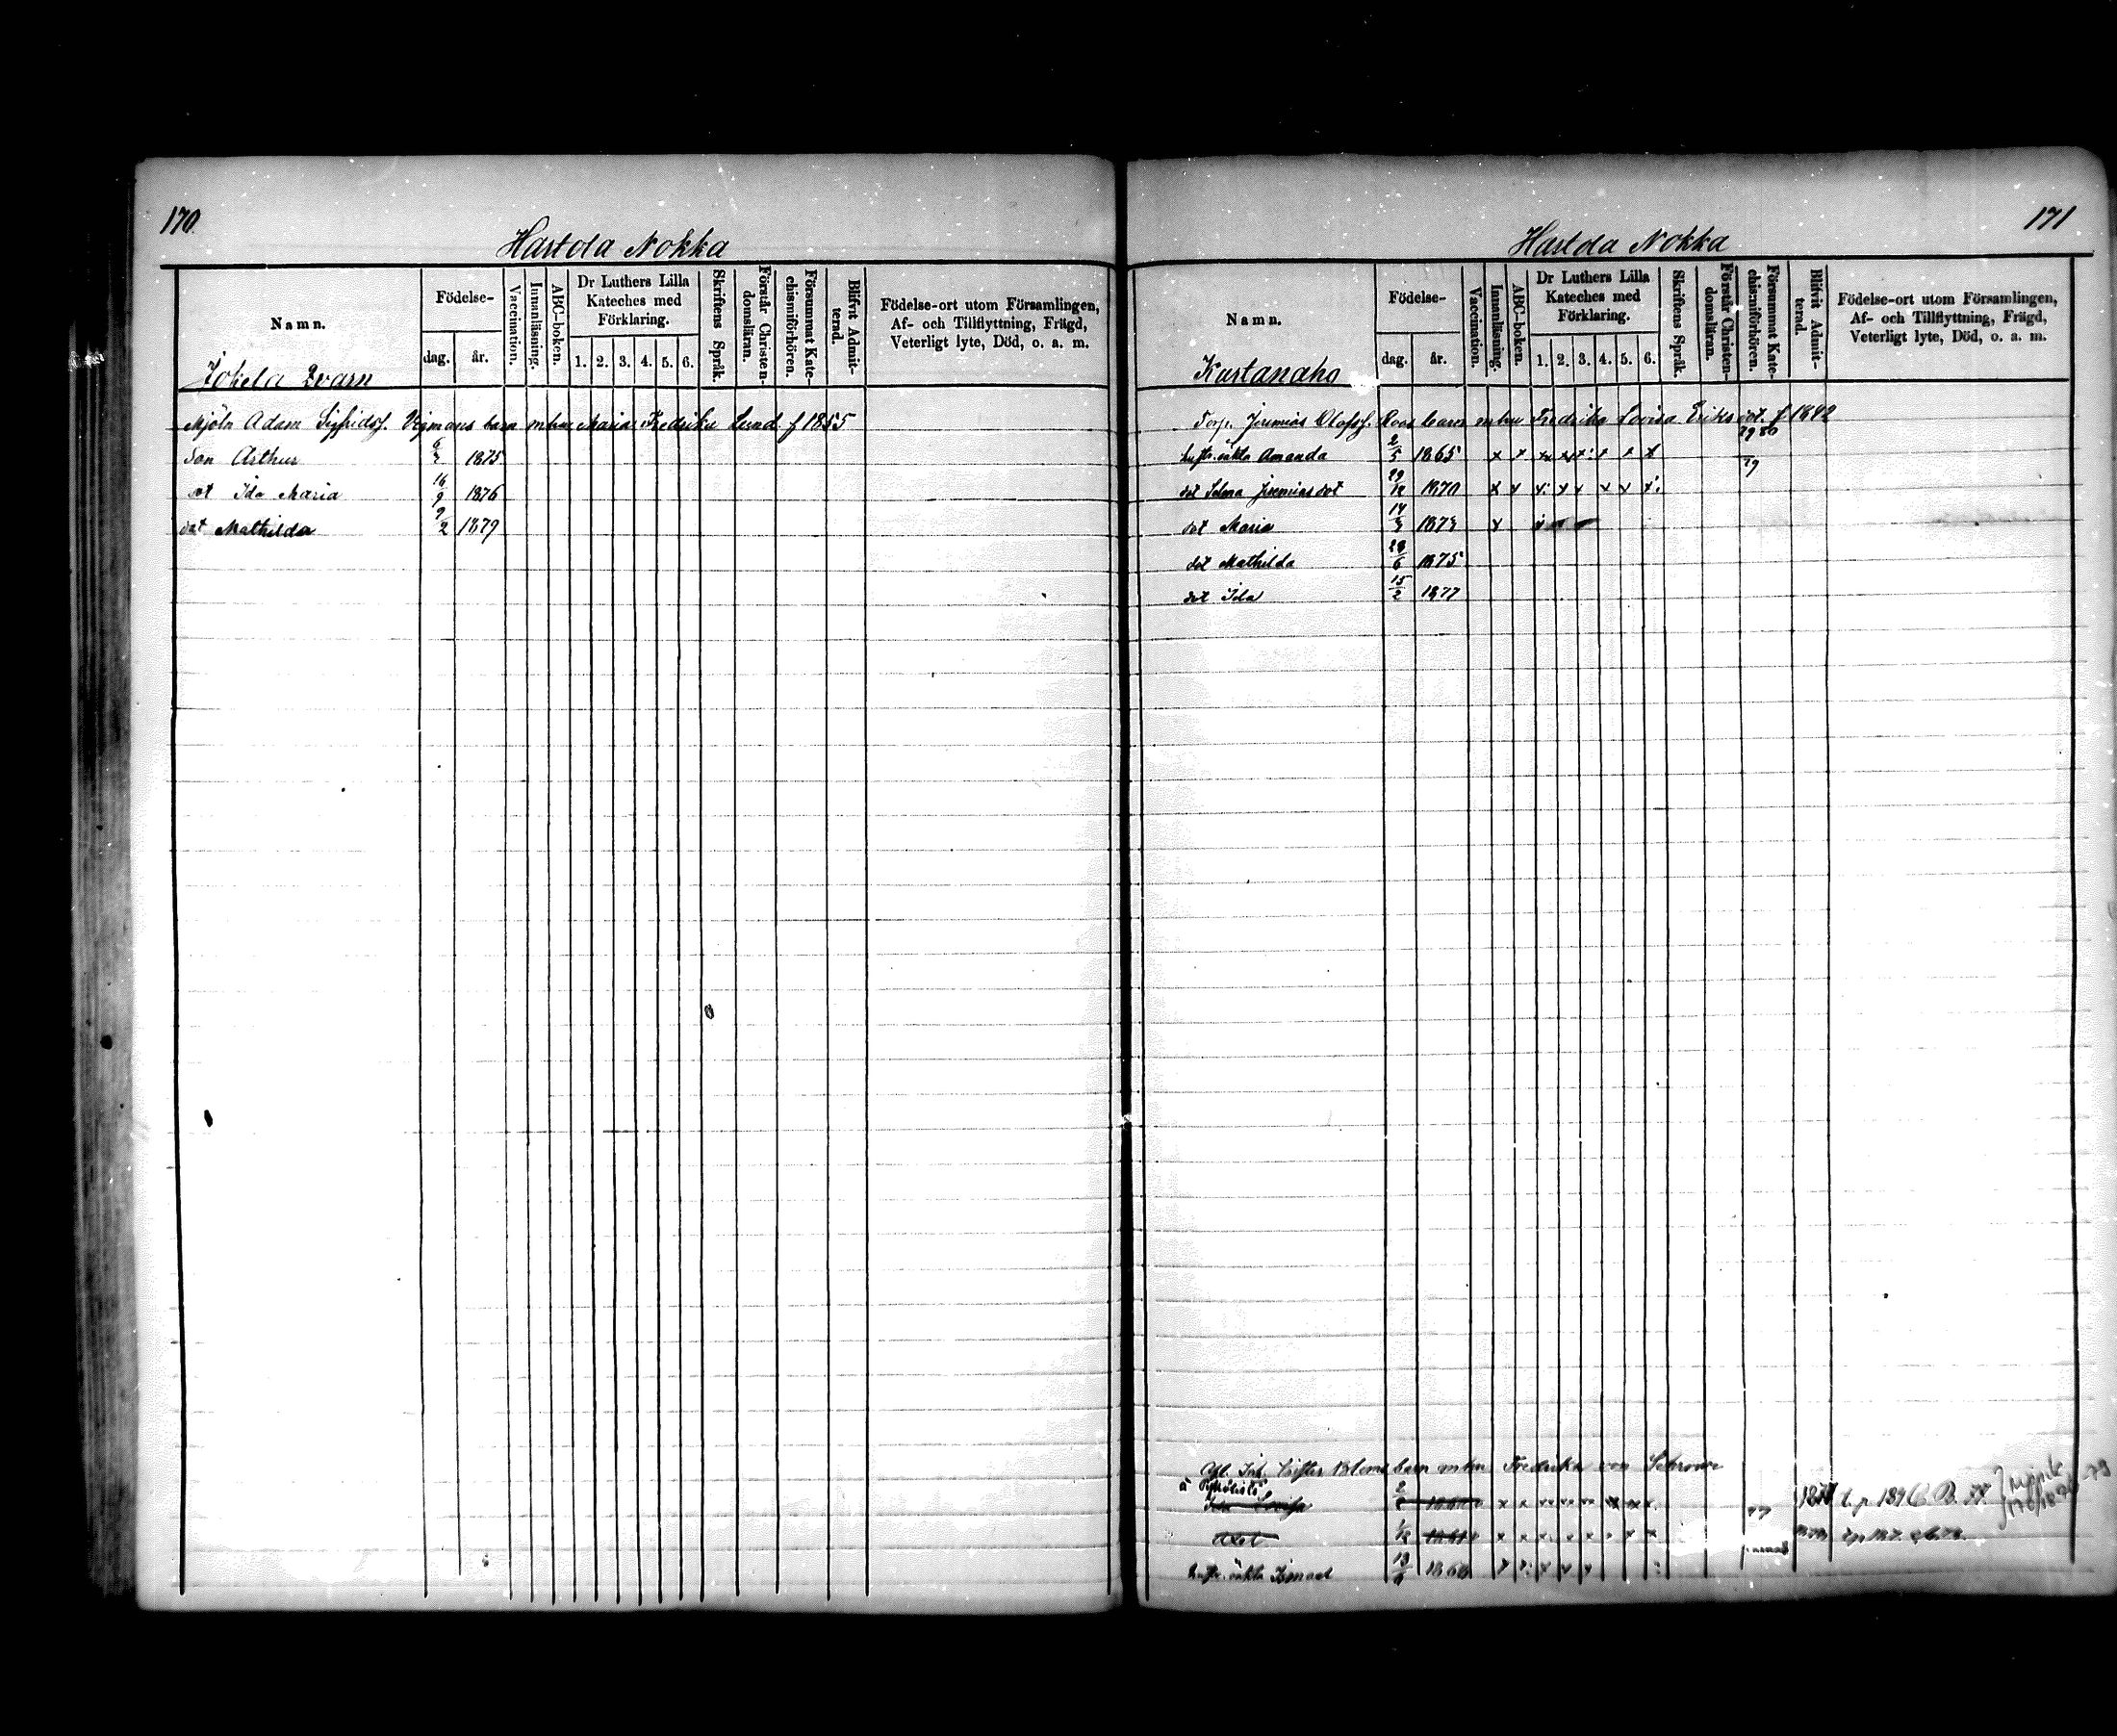 170
Hastola Nokka
Namn.
Födelse-
dag.
år.
Vaccination.
Innanläsning.
ABC-boken.
Dr Luthers Lilla
Kateches med
Förklaring.
1. 2. 3. 4. 5. 6.
Skriftens Språk.
Förstår Christen-
domsläran.
Försummat Kate-
chismiförhören.
Blifvit Admit-
terad.
Födelse-ort utom Församlingen,
Af- och Tillflyttning, Frägd,
Veterligt lyte, Död, o. a. m.
Jokela Qvarn
Mjöln Adam Sigfridsf. Vigmans barn m hu Maria Fredrika Lund f 1855
Son Arthur 1875
dot Ida Maria 16/9 1876
dot Mathilda 9/2 1879
171
Hastola Nokka
Namn.
Födelse-
dag.
år.
Vaccination.
Innanläsning.
ABC-boken.
Dr Luthers Lilla
Kateches med
Förklaring.
1. 2. 3. 4. 5. 6.
Skriftens Språk.
Förstår Christen-
domsläran.
Försummat Kate-
chismiförhören.
Blifvit Admit-
terad.
Födelse-ort utom Församlingen,
Af- och Tillflyttning, Frägd,
Veterligt lyte, Död, o. a. m.
Kurtanaho
Torp. Jeremias Olofsf. Roos barn m hu Fredrika Lovisa Eriksdot. f 1842
79 80
hustr. oäkta Amanda 2/5 1865 x x x x x x x x
79
dot Selma Jeremiasdot 29/12 1870 x x x x x x x x
dot Maria 1873 x
dot Mathilda 28/6 1875
dot Ida 15/2 1877
barn m hu Fredrika von
Ida Lovisa
t. p 189
Axel
hustr. oäkta Ismael 1868